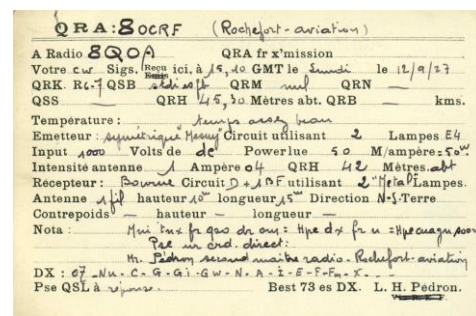 QRA: 8OCRF (Rochefort-aviation)
A Radio 8QOA QRA fr x'mission
Votre cw Sigs. Reçu Emis ici, à 15,10 GMT le Lundi le 12/9/27
QRK. R6-7 QSB QRM nul QRN —
QSS — QRH 45,30 Mètres abt. QRB — kms.
Température: temps assez beau
Emetteur: symétrique "Mesny" Circuit utilisant 2 Lampes E4
Input 1000 Volts de dc Powerlue 50 M/ampère=50w
Intensité antenne 1 Ampère 04 QRH 42 Mètres. abt
Récepteur: Bourne Circuit D+1BF utilisant 2 "Metal" Lampes.
Antenne 1 fil hauteur 10m longueur 15m Direction N-S. Terre
Contrepoids — hauteur — longueur —
Nota: Mni tnx fr qso dr om = Hpe dx fr u = Hpe cuagn soon
Pse ur crd. direct:
Mr. Pédron second maître radio. Rochefort-aviation
DX: 67 - Nu - C - G - Gi - GW - N - A - I - E - F - Fm - X - - -
Pse QSL à réponse. Best 73 es DX. L. H. Pedron.